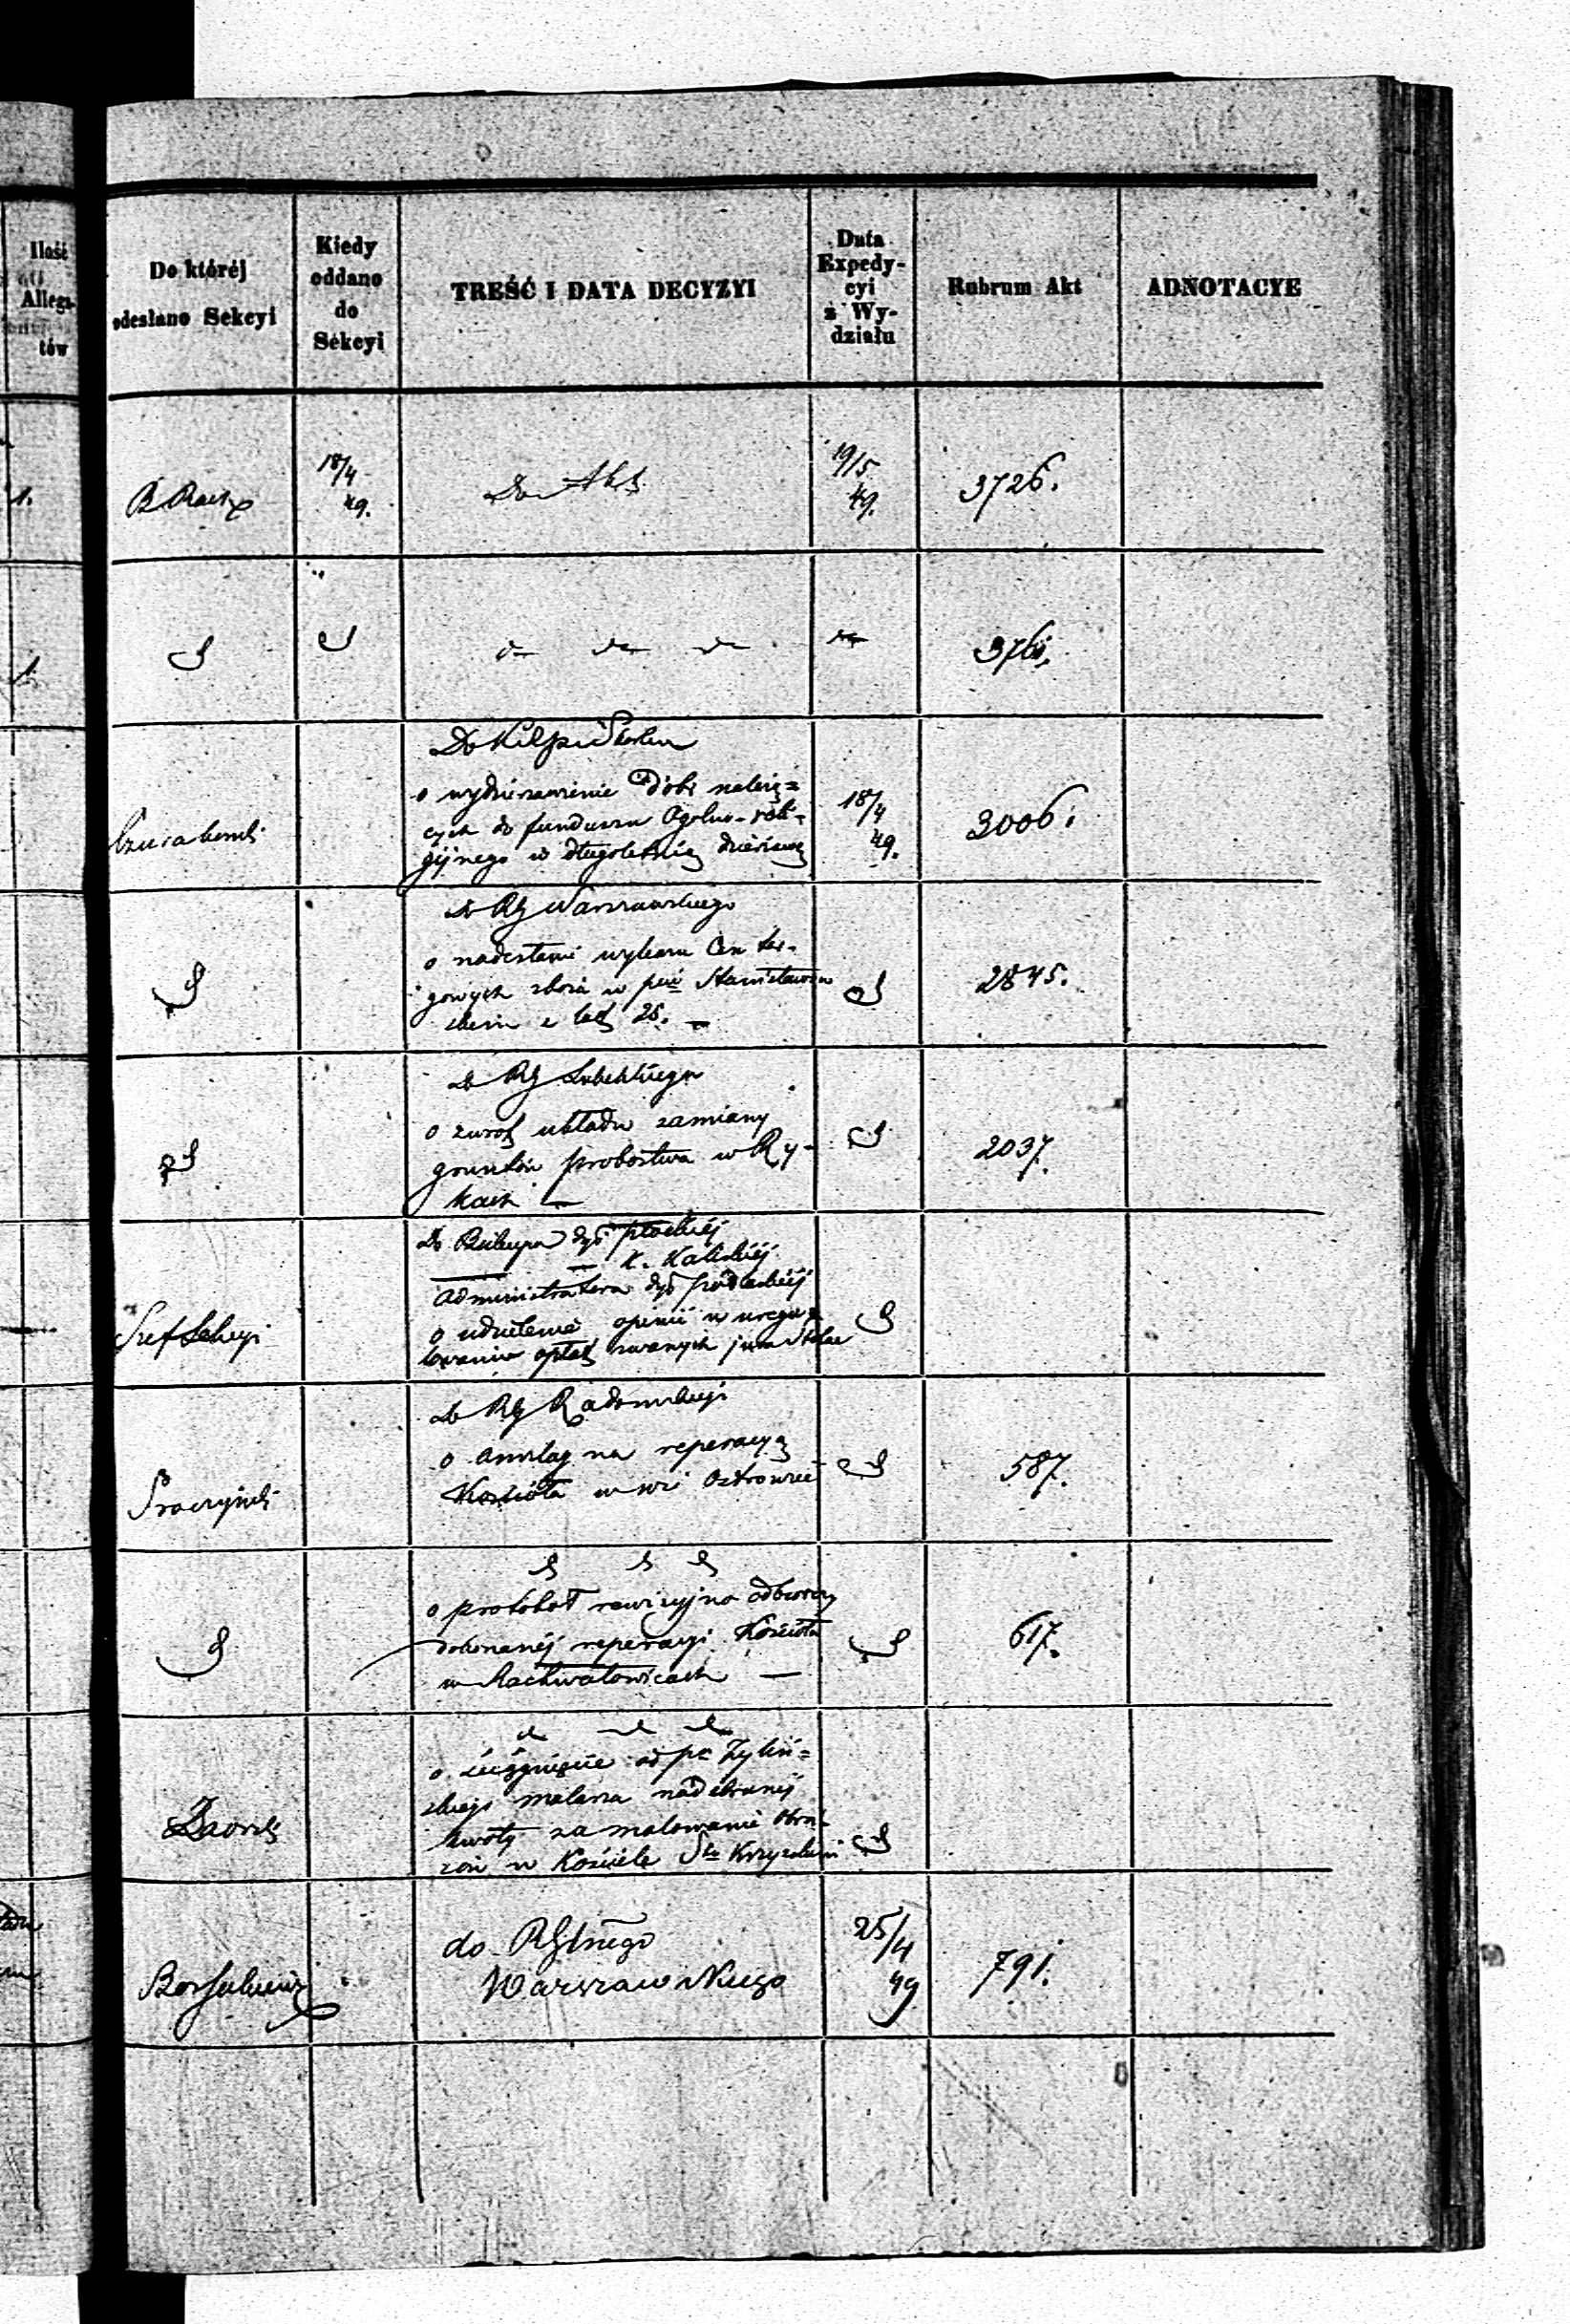 Ilość
Allega-
tów
Do któréj
odesłano Sekcyi
Kiedy
oddano
do
Sekcyi
TREŚĆ I DATA DECYZYI
Data
Expedy-
cyi
z Wy-
działu
Rubrum Akt
ADNOTACYE
1.
B Rach
18/4
49.
Do Akt
19/5
49.
3726.
1.
Do
o wydzierżawienie Dóbr należą=
cych do funduszu Ogólno-reli-
gijnego w długoletnią dzierżawę
18/4
49.
3006.
do RG Warszawskiego
o nadesłanie wykazu Cen tar-
gowych zboża w pcie Stanisławow
skim z lat 25. —
2845.
do RG Lubelskiego
o zwrot układu zamiany
gruntów probostwa w Ry-
kach —
2037.
Szef Sekcyi
Do Biskupa dyi płockiéj
— K. Kaliskiéj
Administratora dyi podlaskiéj
o udzielenie opinii w uregu=
lowaniu opłat zwanych jura Stolae
do RG Radomskiego
o anszlag na reperacyą
Kościoła w wsi Ostrowcu
587.
o protokół rewizyjno odbiorczy
dokonanéj reperacyi Kościoła
w Rachwałowicach —
617.
o ściągnięcie od pa Żyliń=
skiego malarza nadebranéj
kwoty za malowanie obra-
zów w Kościele Sto Krzyskim
do RGlnego
Warszawskiego
25/4
49
791.